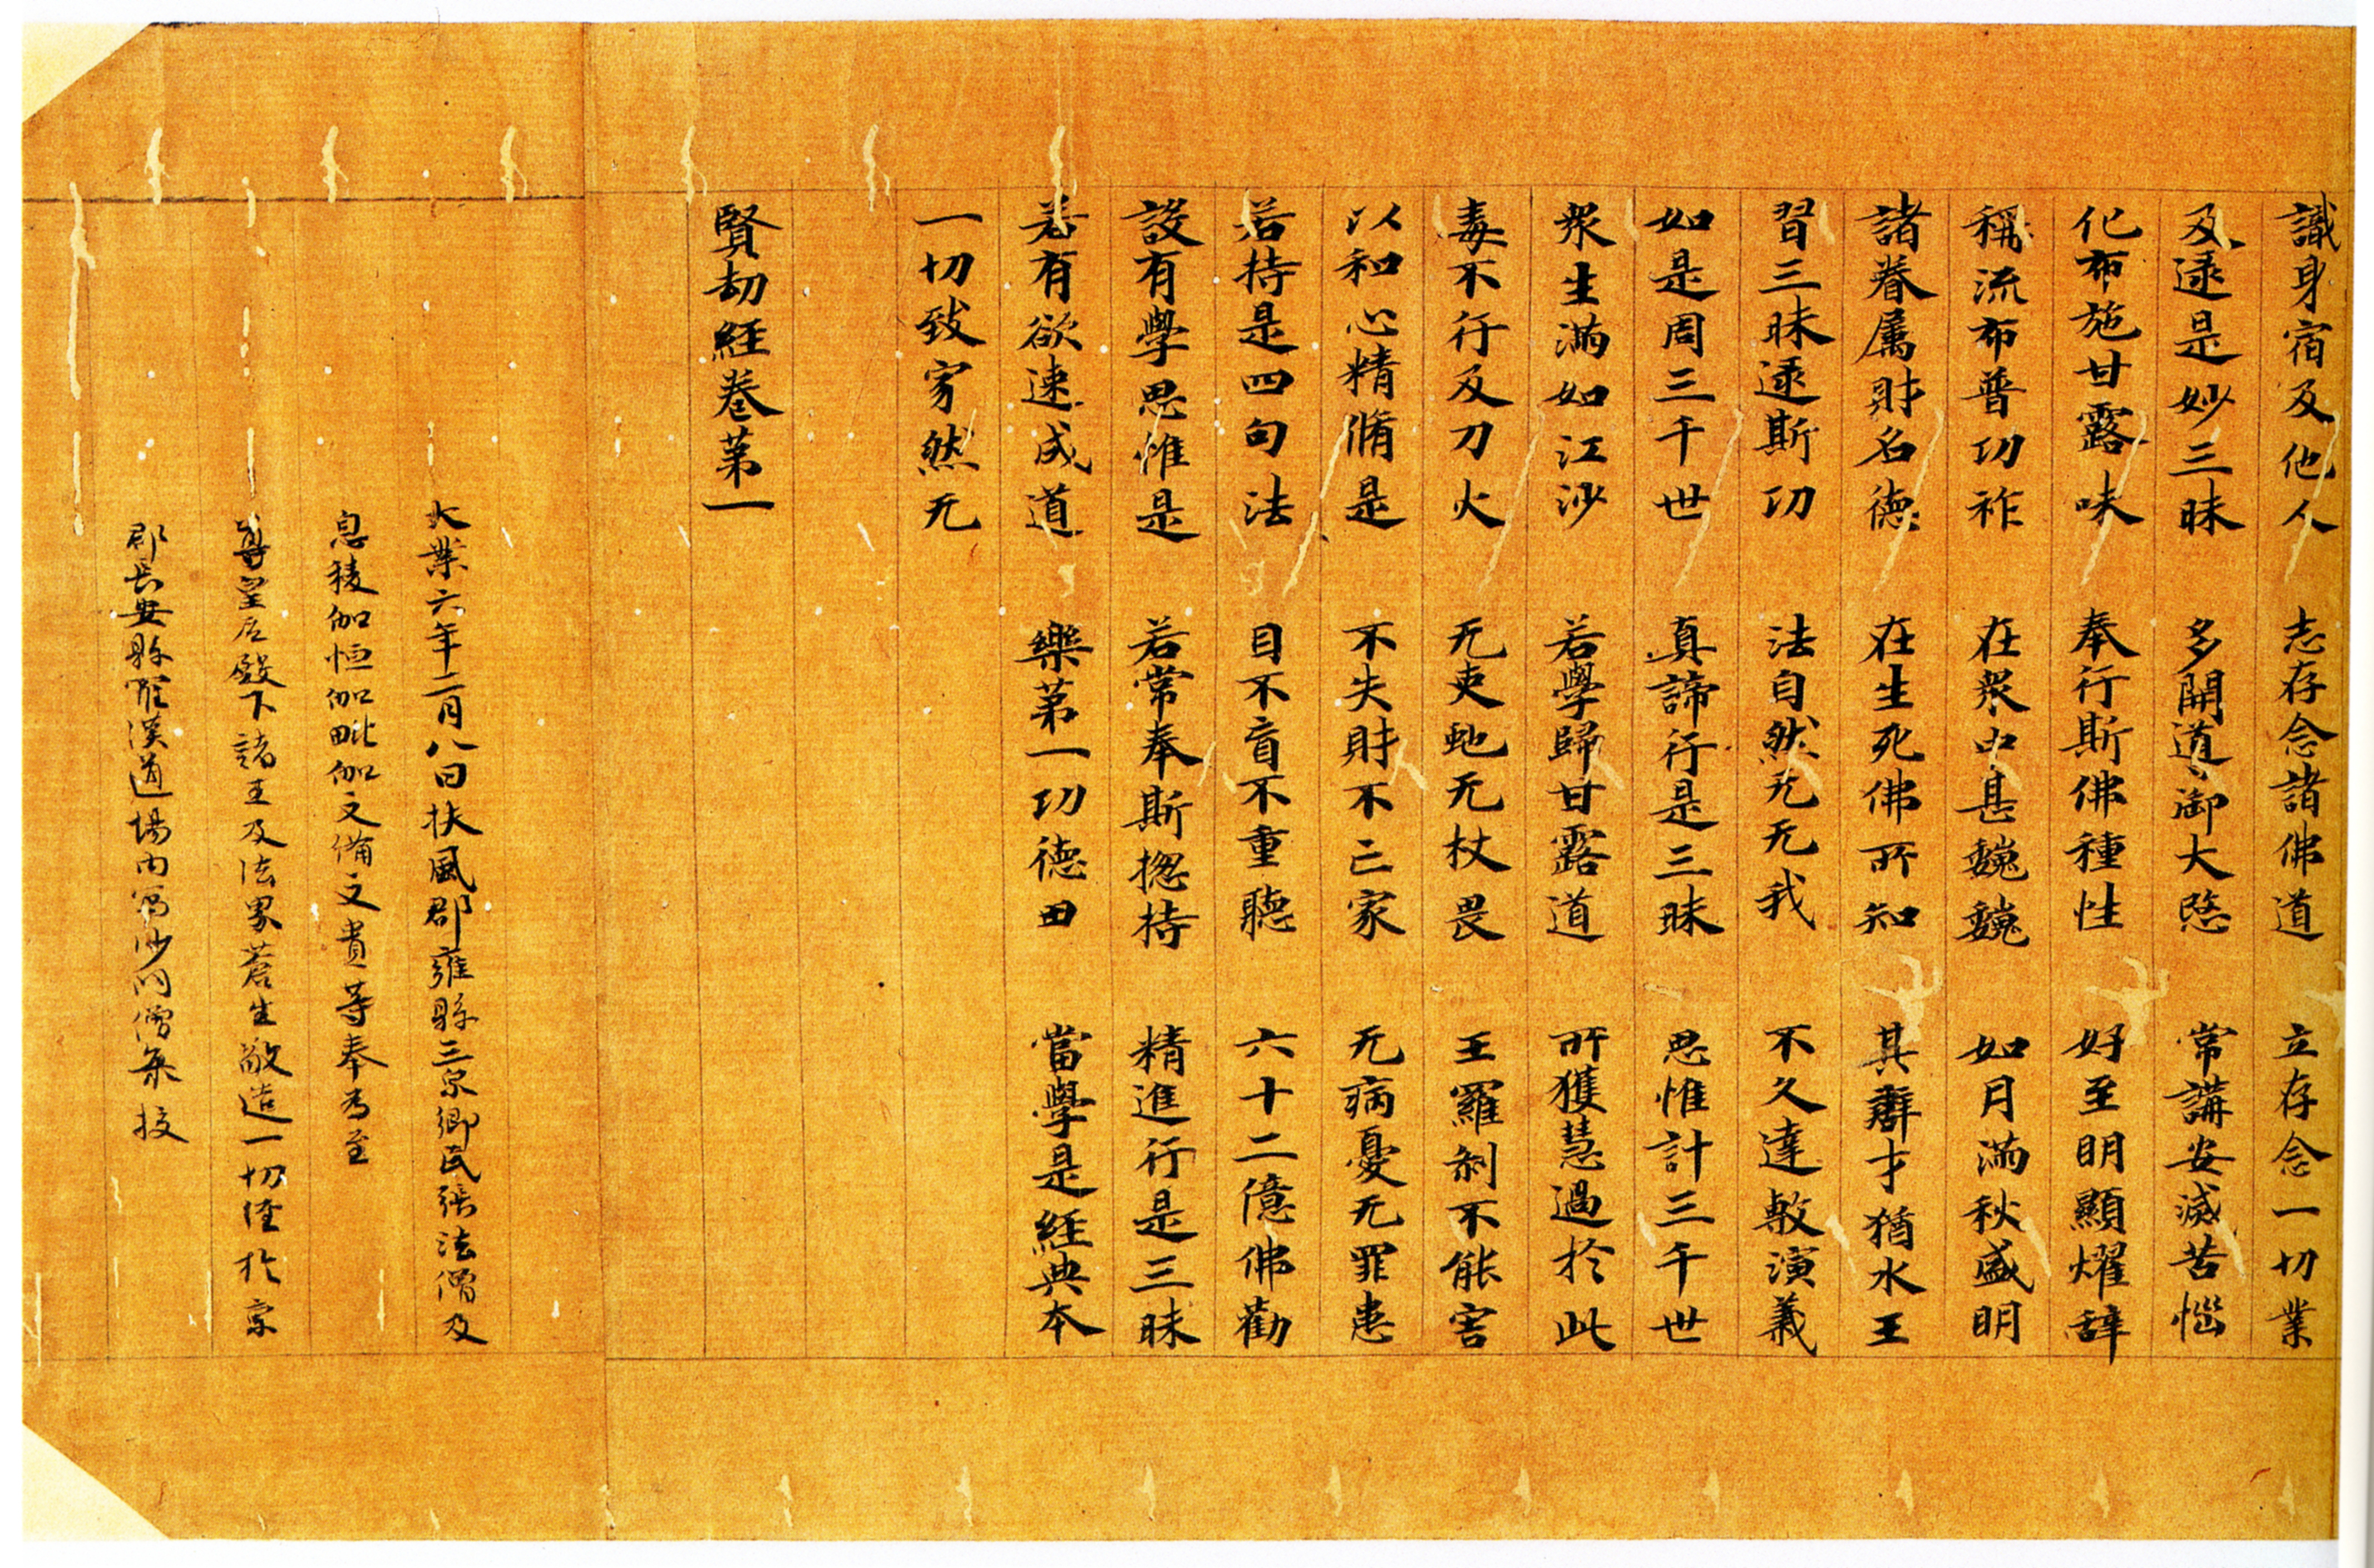 識身宿及他人　志存念諸佛道　立存念一切業
及逮是妙三昧　多開道御大愍　常講安滅苦惱
化布施甘露味　奉行斯佛種性　好至明顯燿辞
稱流布普功祚　在衆中甚巍巍　如月滿秋盛明
諸眷屬財名德　在生死佛所知　其辯才猶水王
習三昧逮斯功　法自然无无我　不久達敷演義
如是周三千世　真諦行是三昧　思惟計三千世
衆生滿如江沙　若學歸甘露道　所獲慧過於此
毒不行及刀火　无吏虵无杖畏　王羅刹不能害
以和心精脩是　不失財不亡家　无病憂无罪患
若持是四句法　目不盲不重聽　六十二億佛勸
設有學思惟是　若常奉斯揔持　精進行是三昧
若有欲速成道　樂第一功德田　當學是經典本
一切致寂然无
賢劫經卷第一
大業六年二月八日扶風郡雍縣三泉鄉民張法僧及
息稜伽恒伽毗伽文備文貴等奉為至
尊皇后殿下諸王及法界蒼生敬造一切經於京
郡長安縣羅漢道場內寫沙門僧集挍